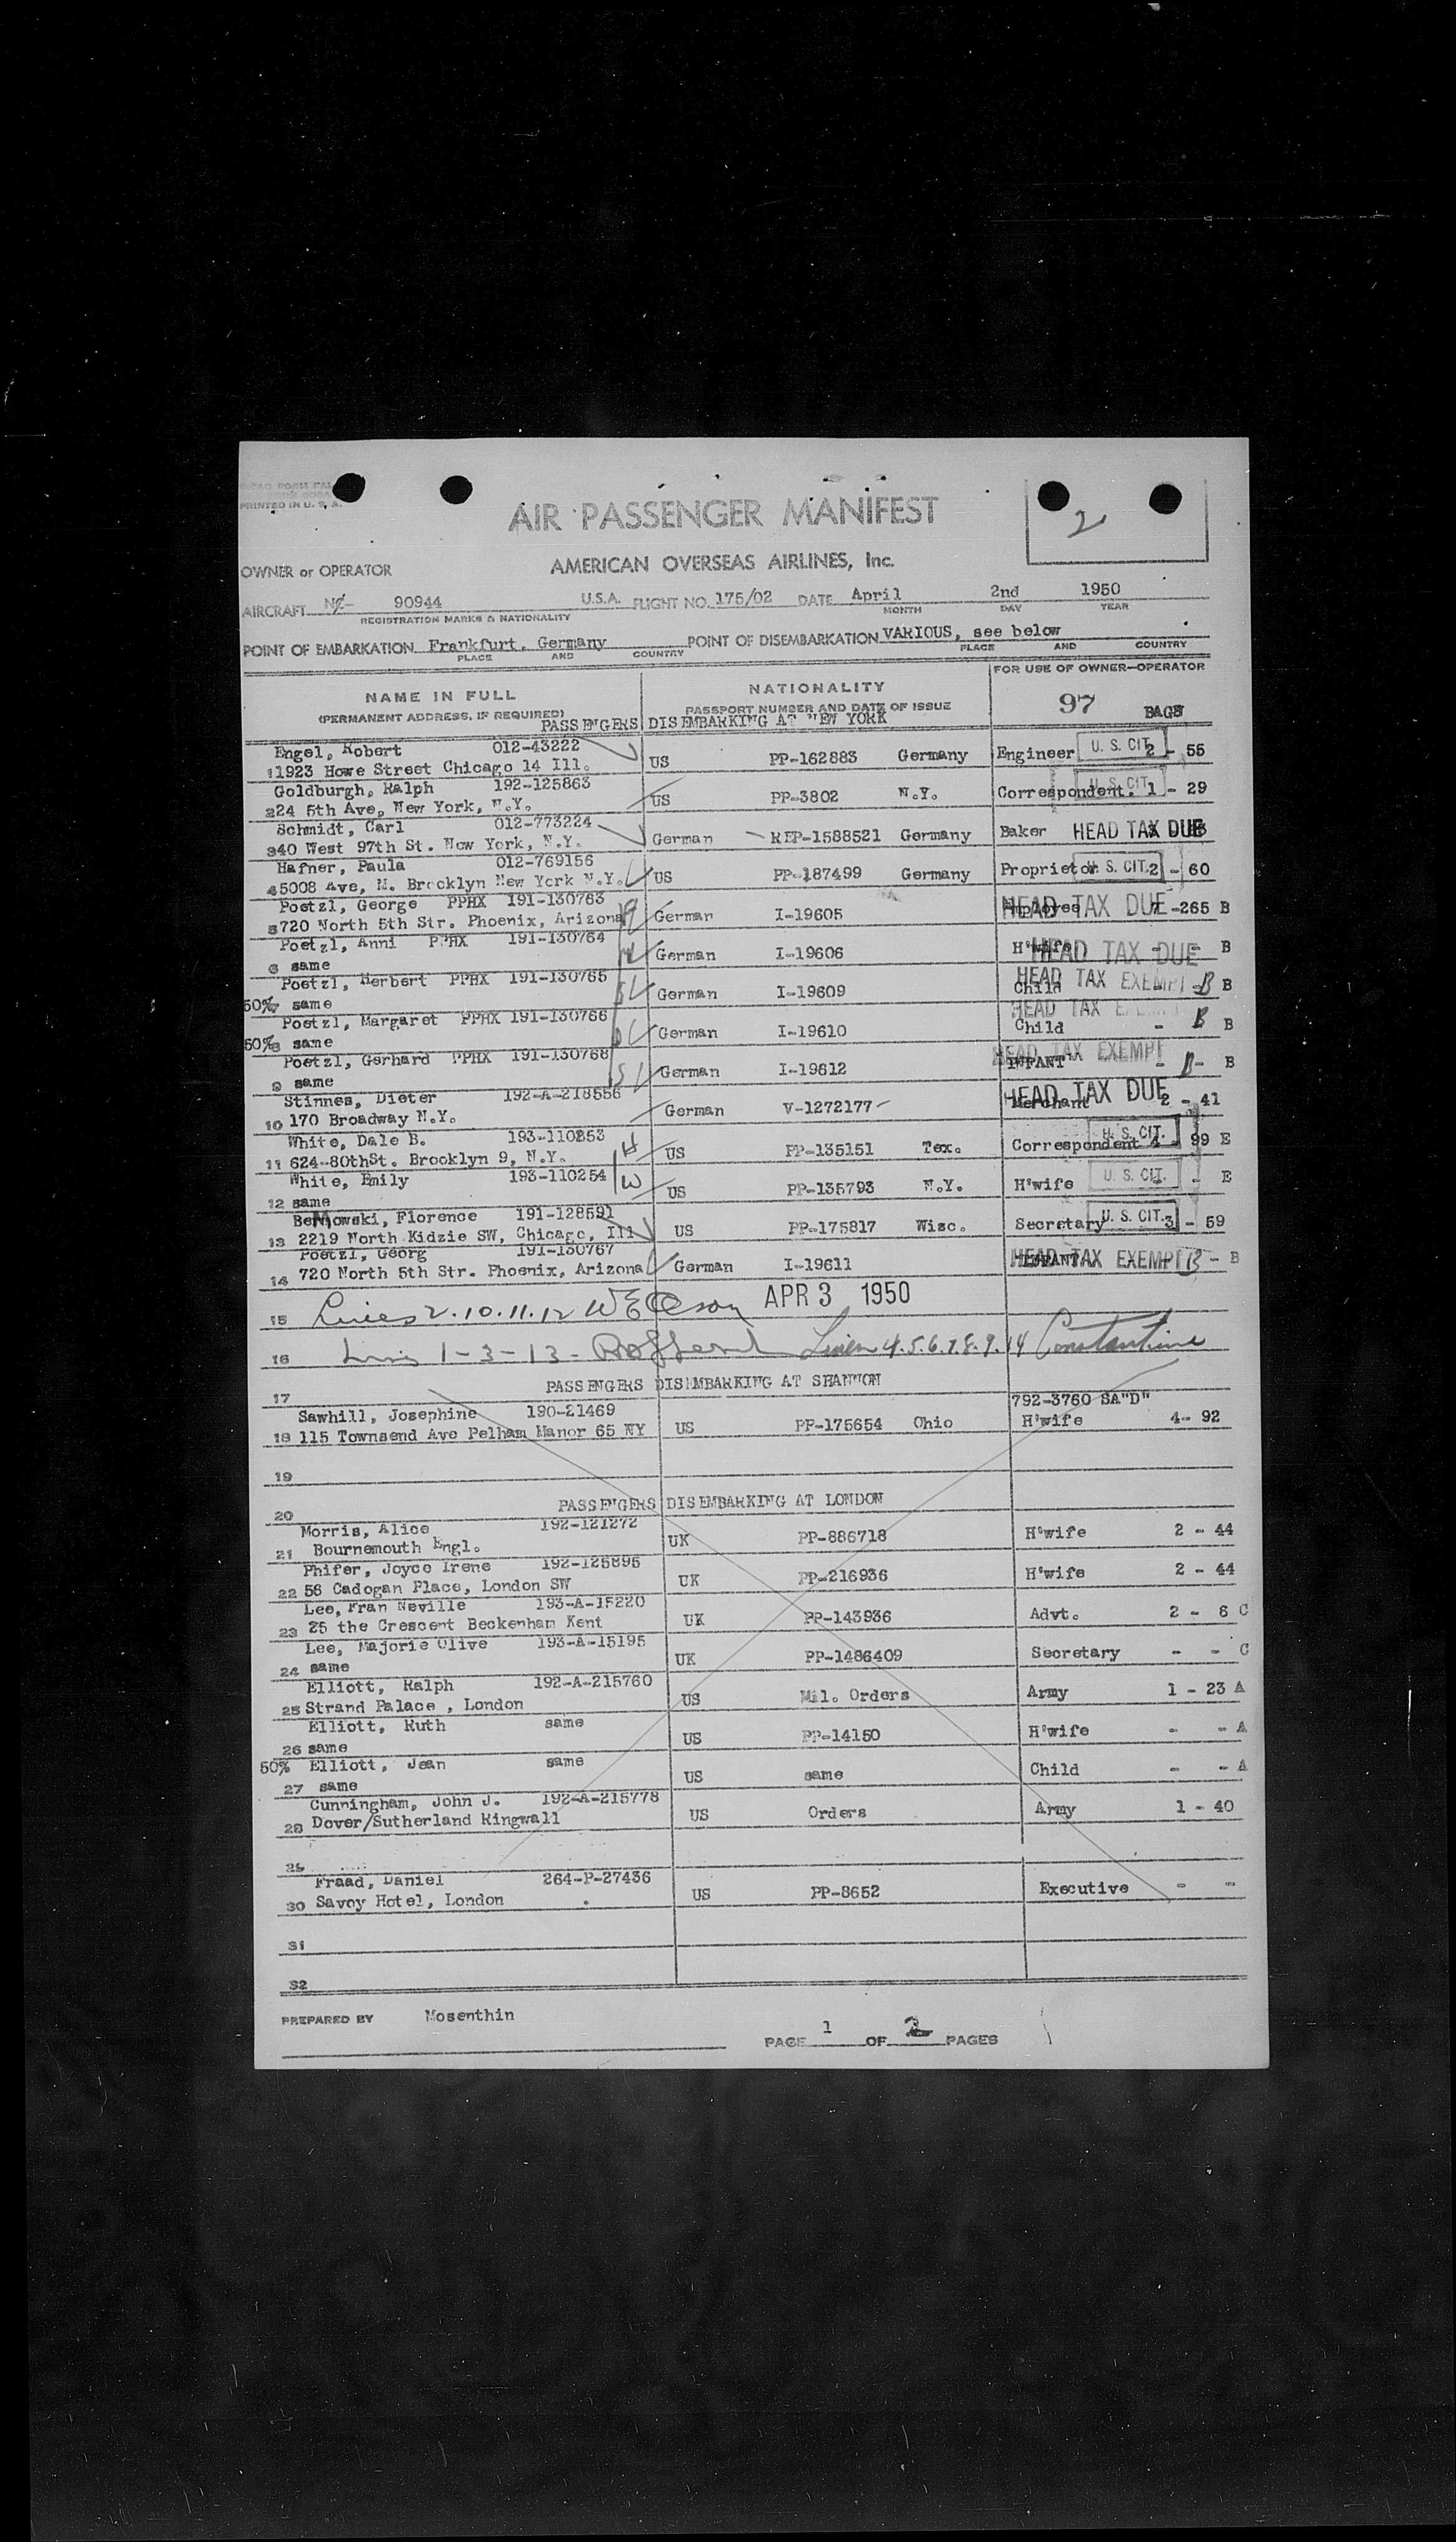 PRINTED IN U. S. A.
AIR PASSENGER MANIFEST
2
OWNER or OPERATOR AMERICAN OVERSEAS AIRLINES, Inc.
AIRCRAFT 90944 U.S.A. FLIGHT NO. 175/02 DATE April 2nd 1950
REGISTRATION MARKS & NATIONALITY MONTH DAY YEAR
POINT OF EMBARKATION Frankfurt. Germany POINT OF DISEMBARKATION VARIOUS, see below
PLACE AND COUNTRY PLACE AND COUNTRY
FOR USE OF OWNER—OPERATOR
NAME IN FULL NATIONALITY
(PERMANENT ADDRESS, IF REQUIRED) PASSPORT NUMBER AND DATE OF ISSUE 97 BAGS
PASSENGERS DISEMBARKING AT NEW YORK
Engel, Robert 012-43222
1 1923 Howe Street Chicago 14 Ill. US PP-162883 Germany Engineer U. S. CIT. 2 - 55
Goldburgh, Ralph 192-125863
2 24 5th Ave, New York, N.Y. US PP-3802 N.Y. Correspondent. U. S. CIT. 1 - 29
Schmidt, Carl 012-773224
3 40 West 97th St. New York, N.Y. German REP-1588521 Germany Baker HEAD TAX DUE
Hafner, Paula 012-769156
4 5008 Ave, M. Brocklyn New York N.Y. US PP-187499 Germany Proprietor U. S. CIT. 2 - 60
Poetzl, George PPHX 191-130763
5 720 North 5th Str. Phoenix, Arizona German I-19605 HEAD TAX DUE -265 B
Poetzl, Anni PPHX 191-130764
6 same German I-19606 H'wife HEAD TAX DUE - B
Poetzl, Herbert PPHX 191-130765
50% 7 same German I-19609 Child HEAD TAX EXEMPT B B
Poetzl, Margaret PPHX 191-130766
50% 8 same German I-19610 Child HEAD TAX - B B
Poetzl, Gerhard PPHX 191-130768
9 same German I-19612 INFANT HEAD TAX EXEMPT - B - B
Stinnes, Dieter 192-A-218556
10 170 Broadway N.Y. German V-1272177 Merchant HEAD TAX DUE 2 - 41
White, Dale B. 193-110253 H
11 624-80thSt. Brooklyn 9, N.Y. US PP-135151 Tex. Correspondent U. S. CIT. 4 - 99 E
White, Emily 193-110254 W
12 same US PP-135793 N.Y. H'wife U. S. CIT. - E
Bernowski, Florence 191-128591
13 2219 North Kidzie SW, Chicago, Ill US PP-175817 Wisc. Secretary U. S. CIT. 3 - 59
Poetzl, Georg 191-130767
14 720 North 5th Str. Phoenix, Arizona German I-19611 INFANT HEAD TAX EXEMPT B - B
15 Lines 2.10.11.12 APR 3 1950
16 Lines 1-3-13- Lines 4.5.6.7.8.9.14 Constantine
17 PASSENGERS DISEMBARKING AT SHANNON
Sawhill, Josephine 190-21469 792-3760 SA"D"
18 115 Townsend Ave Pelham Manor 65 NY US PP-175654 Ohio H'wife 4- 92
19
20 PASSENGERS DISEMBARKING AT LONDON
Morris, Alice 192-121272
21 Bournemouth Engl. UK PP-886718 H'wife 2 - 44
Phifer, Joyce Irene 192-125895
22 56 Cadogan Place, London SW UK PP-216936 H'wife 2 - 44
Lee, Fran Neville 193-A-15220
23 25 the Crescent Beckenham Kent UK PP-143936 Advt. 2 - 6 C
Lee, Majorie Olive 193-A-15195
24 same UK PP-1486409 Secretary - - C
Elliott, Ralph 192-A-215760
25 Strand Palace , London US Mil. Orders Army 1 - 23 A
Elliott, Ruth same
26 same US PP-14150 H'wife - - A
50% Elliott, Jean same
27 same US same Child - - A
Cunningham, John J. 192-A-215778
28 Dover/Sutherland Ringwall US Orders Army 1 - 40
29
Fraad, Daniel 264-P-27436
30 Savoy Hotel, London US PP-8652 Executive - -
31
32
PREPARED BY Mosenthin
PAGE 1 OF 2 PAGES